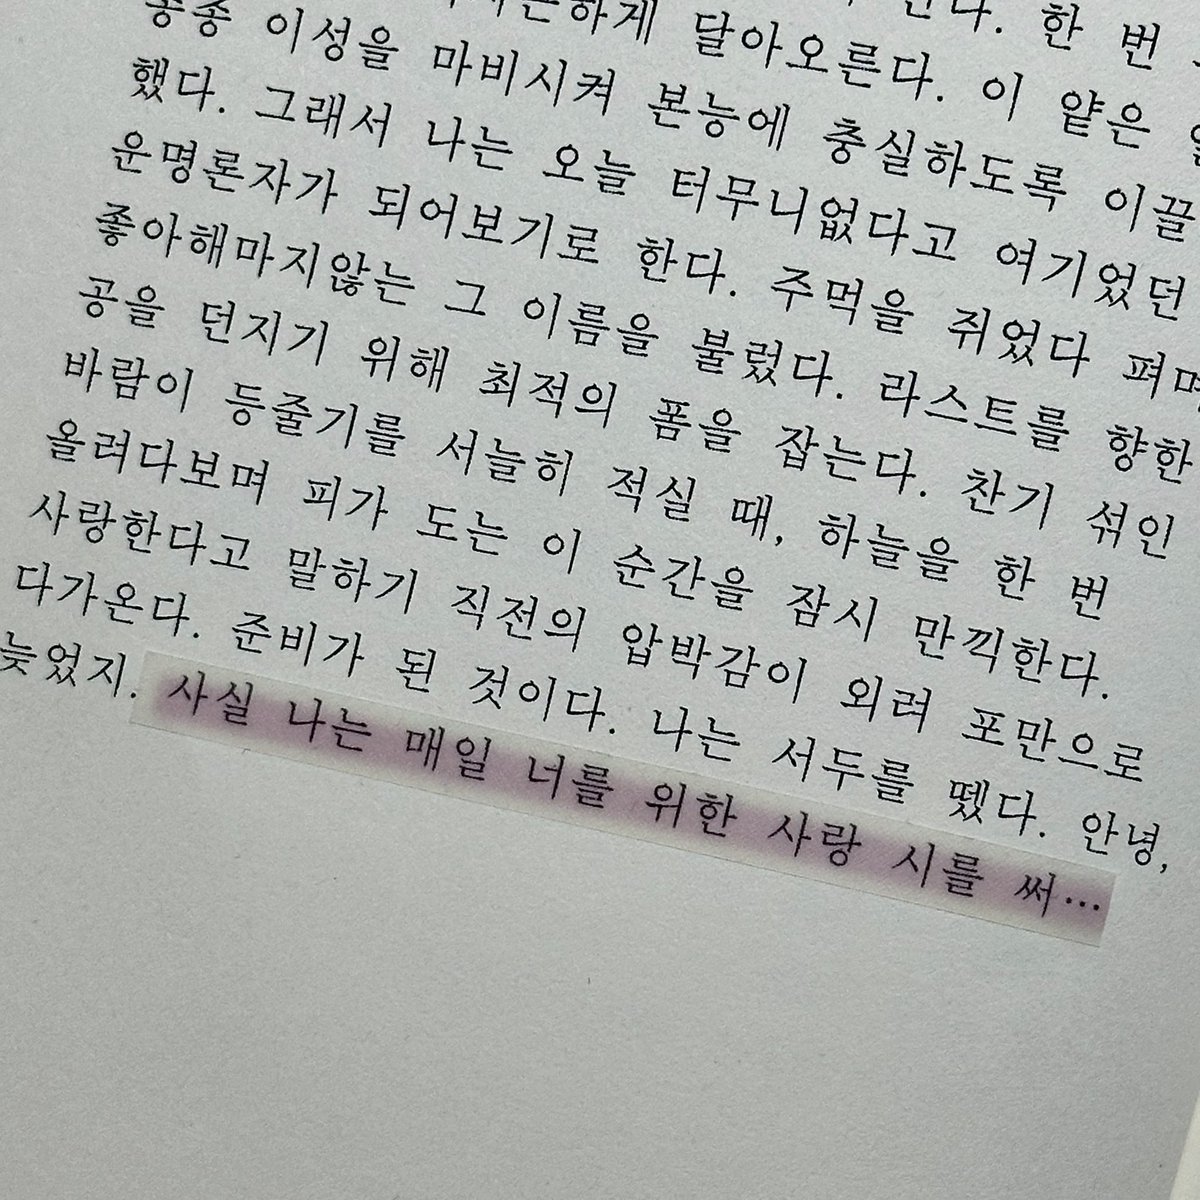 한다. 한 번
달아오른다. 이 얕은
종종 이성을 마비시켜 본능에 충실하도록 이끌
했다. 그래서 나는 오늘 터무니없다고 여기었던
운명론자가 되어보기로 한다. 주먹을 쥐었다 펴며
좋아해마지않는 그 이름을 불렀다. 라스트를 향한
공을 던지기 위해 최적의 폼을 잡는다. 찬기 섞인
바람이 등줄기를 서늘히 적실 때, 하늘을 한 번
올려다보며 피가 도는 이 순간을 잠시 만끽한다.
사랑한다고 말하기 직전의 압박감이 외려 포만으로
다가온다. 준비가 된 것이다. 나는 서두를 뗐다. 안녕,
늦었지. 사실 나는 매일 너를 위한 사랑 시를 써…